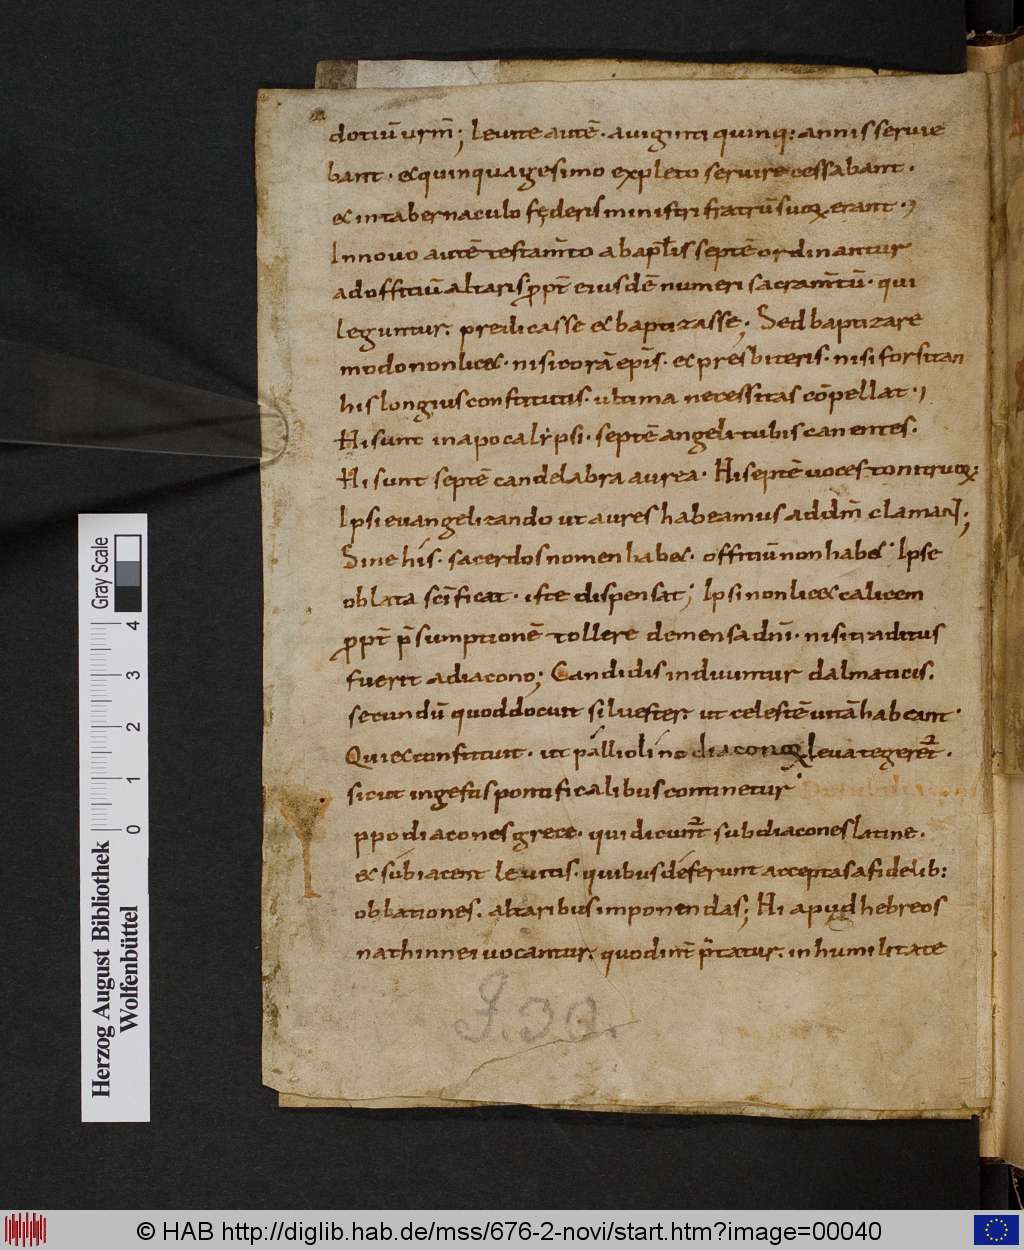 dotiū urm̄; leuite autē. a uiginti quinq: annis seruie
bant. & quinquagesimo expleto seruire cessabant.
& in tabernaculo fęderis ministri fratrū suoꝝ erant.
In nouo autē testam̄to ab apłis septē ordinantur
ad offitiū altaris ꝓpt̄ eiusdē numeri sacram̄tū. qui
leguntur. predicasse & baptizasse; Sed baptizare
modo non lic&. nisi corā epīs. & presbiteris. nisi forsitan
his longius constitutis. ultima necessitas cōpellat.
Hi sunt in apocalẏpsi. septē angeli tubis canentes.
Hi sunt septē candelabra aurea. Hi septē uoces tonitruoꝝ:
Ipsi euangelizando ut aures habeamus ad dn̄m clamant;
Sine his. sacerdos nomen hab&. offitiū non hab&. Ipse
oblata scīficat. iste dispensat; Ipsi non lic& calicem
ꝓpt̄ p̄sumptionē tollere de mensa dn̄i. nisi traditus
fuerit a diacono; Candidis induuntur dalmaticis.
secundū quod docuit siluester. ut celestē uitā habeant.
Qui & constituit. ut palliolino diaconoꝝ leua tegeret̄.
sicut in gestis pontificalibus continetur
ppodiacones grece. qui dicunt̄ subdiacones latine.
& subiacent leuitis. quibus deferunt acceptas a fidelib:
oblationes. altaribus imponendas; Hi apud hebreos
nathinnei uocantur. quod int̄ p̄tatur. in humilitate
Gray Scale
4
3
2
1
0
Herzog August Bibliothek
Wolfenbüttel
© HAB http://diglib.hab.de/mss/676-2-novi/start.htm?image=00040